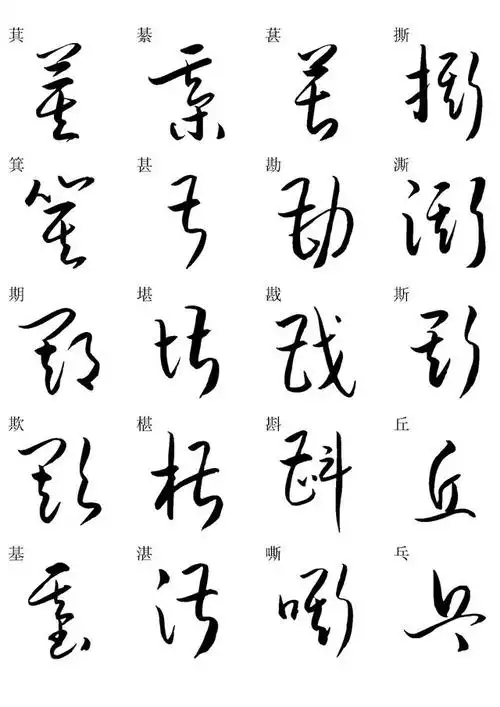 萁 綦 葚 撕
箕 甚 勘 澌
期 堪 戡 斯
欺 椹 斟 丘
基 湛 嘶 乓